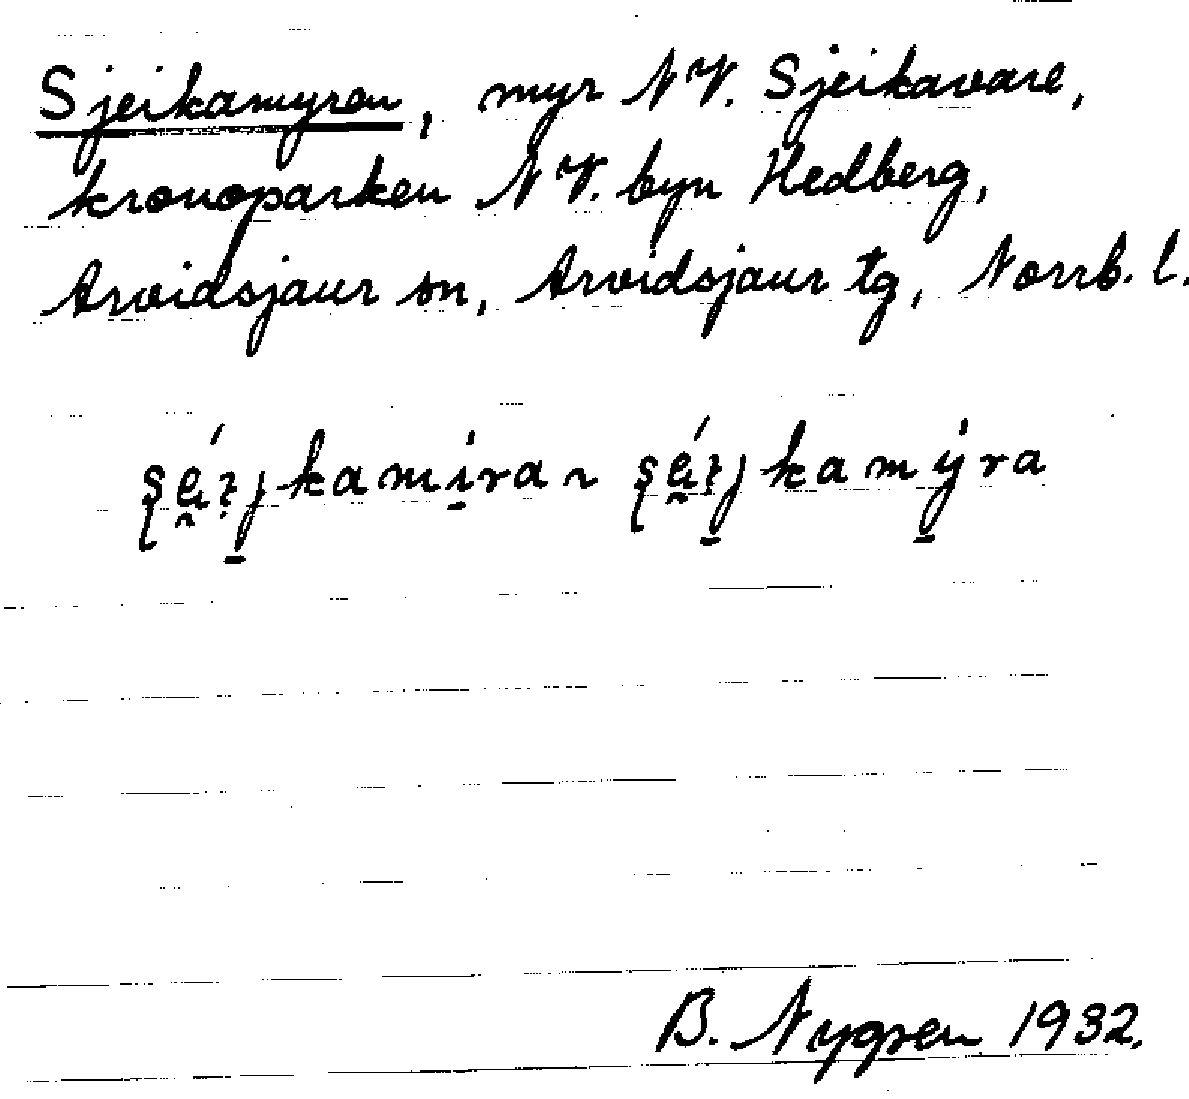 Sjeikamyren, myr N V. Sjeikavare,
kronoparken N V. byn Hedberg,
Arvidsjaur sn, Arvidsjaur tg, Norrb. l.
B. Nygren 1932.